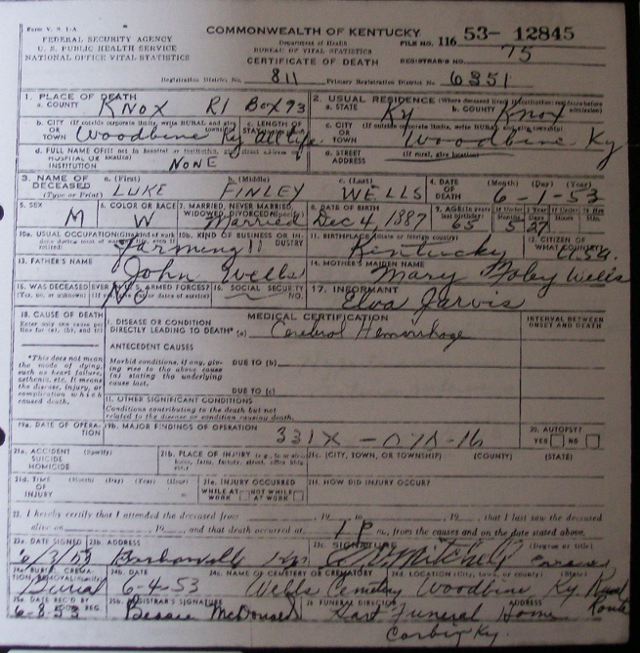 Form V. S. 1-A
COMMONWEALTH OF KENTUCKY
FEDERAL SECURITY AGENCY
U. S. PUBLIC HEALTH SERVICE
NATIONAL OFFICE VITAL STATISTICS
Department of Health
BUREAU OF VITAL STATISTICS
CERTIFICATE OF DEATH
FILE NO. 116 53- 12845
REGISTRAR'S NO. 75
Registration District No. 811 Primary Registration District No. 6351
1. PLACE OF DEATH
a. COUNTY KNOX R1 Box 93
2. USUAL RESIDENCE (Where deceased lived. If institution: residence before admission)
a. STATE Ky b. COUNTY Knox
b. CITY (If outside corporate limits, write RURAL and give township) OR TOWN Woodbine Ky c. LENGTH OF STAY all life
c. CITY (If outside corporate limits, write RURAL and give township) OR TOWN Woodbine Ky
d. FULL NAME OF (If not in hospital or institution, give street address or location) HOSPITAL OR INSTITUTION NONE
d. STREET ADDRESS (If rural, give location)
3. NAME OF DECEASED (Type or Print) a. (First) LUKE b. (Middle) FINLEY c. (Last) WELLS
4. DATE OF DEATH (Month) (Day) (Year) 6-1-53
5. SEX M 6. COLOR OR RACE W 7. MARRIED, NEVER MARRIED, WIDOWED, DIVORCED (Specify) Married
8. DATE OF BIRTH Dec 4 1887 9. AGE (In years last birthday) 65 5 27
10a. USUAL OCCUPATION (Give kind of work) Farming
10b. KIND OF BUSINESS OR INDUSTRY
11. BIRTHPLACE (State or foreign country) Kentucky
12. CITIZEN OF WHAT COUNTRY? USA
13. FATHER'S NAME John Wells
14. MOTHER'S MAIDEN NAME Mary Foley Wells
15. WAS DECEASED EVER IN U.S. ARMED FORCES? (Yes, no, or unknown) (If yes, give war or dates of service) No
16. SOCIAL SECURITY NO.
17. INFORMANT Elva Jarvis
18. CAUSE OF DEATH
Enter only one cause per line for (a), (b), and (c)
MEDICAL CERTIFICATION
INTERVAL BETWEEN ONSET AND DEATH
I. DISEASE OR CONDITION DIRECTLY LEADING TO DEATH* (a) Cerebral Hemorrhage
*This does not mean the mode of dying, such as heart failure, asthenia, etc. It means the disease, injury, or complication which caused death.
ANTECEDENT CAUSES
Morbid conditions, if any, giving rise to the above cause (a) stating the underlying cause last.
DUE TO (b)
DUE TO (c)
II. OTHER SIGNIFICANT CONDITIONS
Conditions contributing to the death but not related to the disease or condition causing death.
19a. DATE OF OPERATION
19b. MAJOR FINDINGS OF OPERATION
331X
20. AUTOPSY?
YES NO
21a. ACCIDENT SUICIDE HOMICIDE (Specify)
21b. PLACE OF INJURY (e.g., in or about home, farm, factory, street, office bldg., etc.)
21c. (CITY, TOWN, OR TOWNSHIP) (COUNTY) (STATE)
21d. TIME OF INJURY (Month) (Day) (Year) (Hour)
21e. INJURY OCCURRED WHILE AT WORK NOT WHILE AT WORK
21f. HOW DID INJURY OCCUR?
22. I hereby certify that I attended the deceased from , 19 , to , 19 , that I last saw the deceased
alive on , 19 , and that death occurred at 1 P m., from the causes and on the date stated above.
23a. DATE SIGNED 6/3/53 23b. ADDRESS Barbourville Ky
23c. SIGNATURE Mitchell (Degree or title) Coroner
24a. BURIAL, CREMATION, REMOVAL (Specify) Burial
24b. DATE 6-4-53
24c. NAME OF CEMETERY OR CREMATORY Wells Cemetery
24d. LOCATION (City, town, or county) (State) Woodbine Ky Rural Route
25a. DATE REC'D BY LOCAL REG. 6-8-53
25b. REGISTRAR'S SIGNATURE Bessie McDonald
26. FUNERAL DIRECTOR Hart Funeral Home ADDRESS
Corbin Ky.